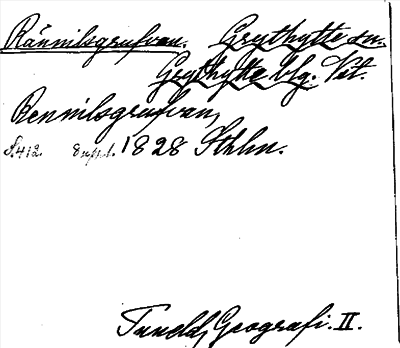 Rännilsgrufvan. Grythytte sn.
Grythytte blg. Vst.
Rennilsgrufvan,
S. 412. 8 uppl. 1828 Sthlm.
Tuneld, Geografi. II.